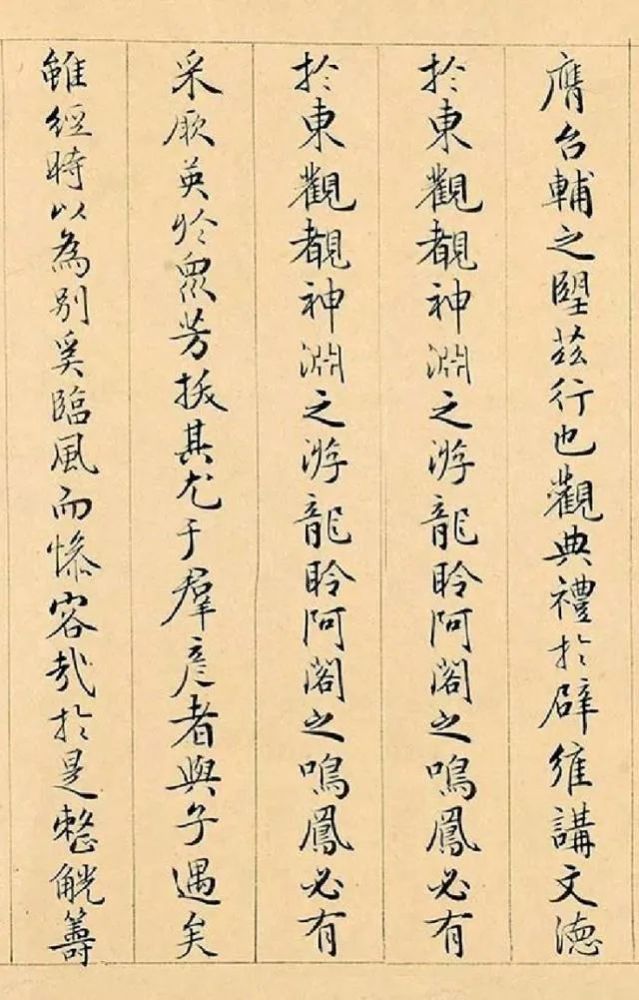 膺台輔之壆茲行也觀典禮扵辟雍講文德
扵東觀覩神淵之游龍聆阿閣之鳴鳳必有
扵東觀覩神淵之游龍聆阿閣之鳴鳳必有
采厥英於衆芳拔其尤于羣彦者與子遇矣
雖經時以為别奚臨風而慘容哉扵是整觥籌